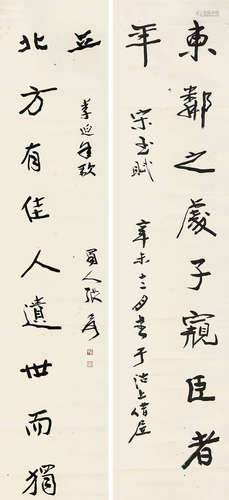 東鄰之處子窺臣者
年
宋玉賦 辛未 月書于 上借居
北方有佳人遺世而獨
立
李延年歌
蜀人張爰